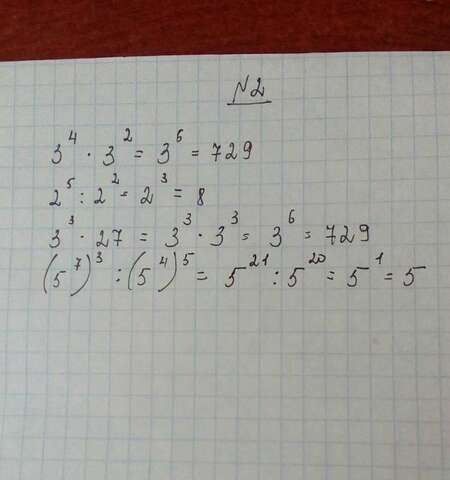 №2
3⁴ · 3² = 3⁶ = 729
2⁵ : 2² = 2³ = 8
3³ · 27 = 3³ · 3³ = 3⁶ = 729
(5⁷)³ : (5⁴)⁵ = 5²¹ : 5²⁰ = 5¹ = 5